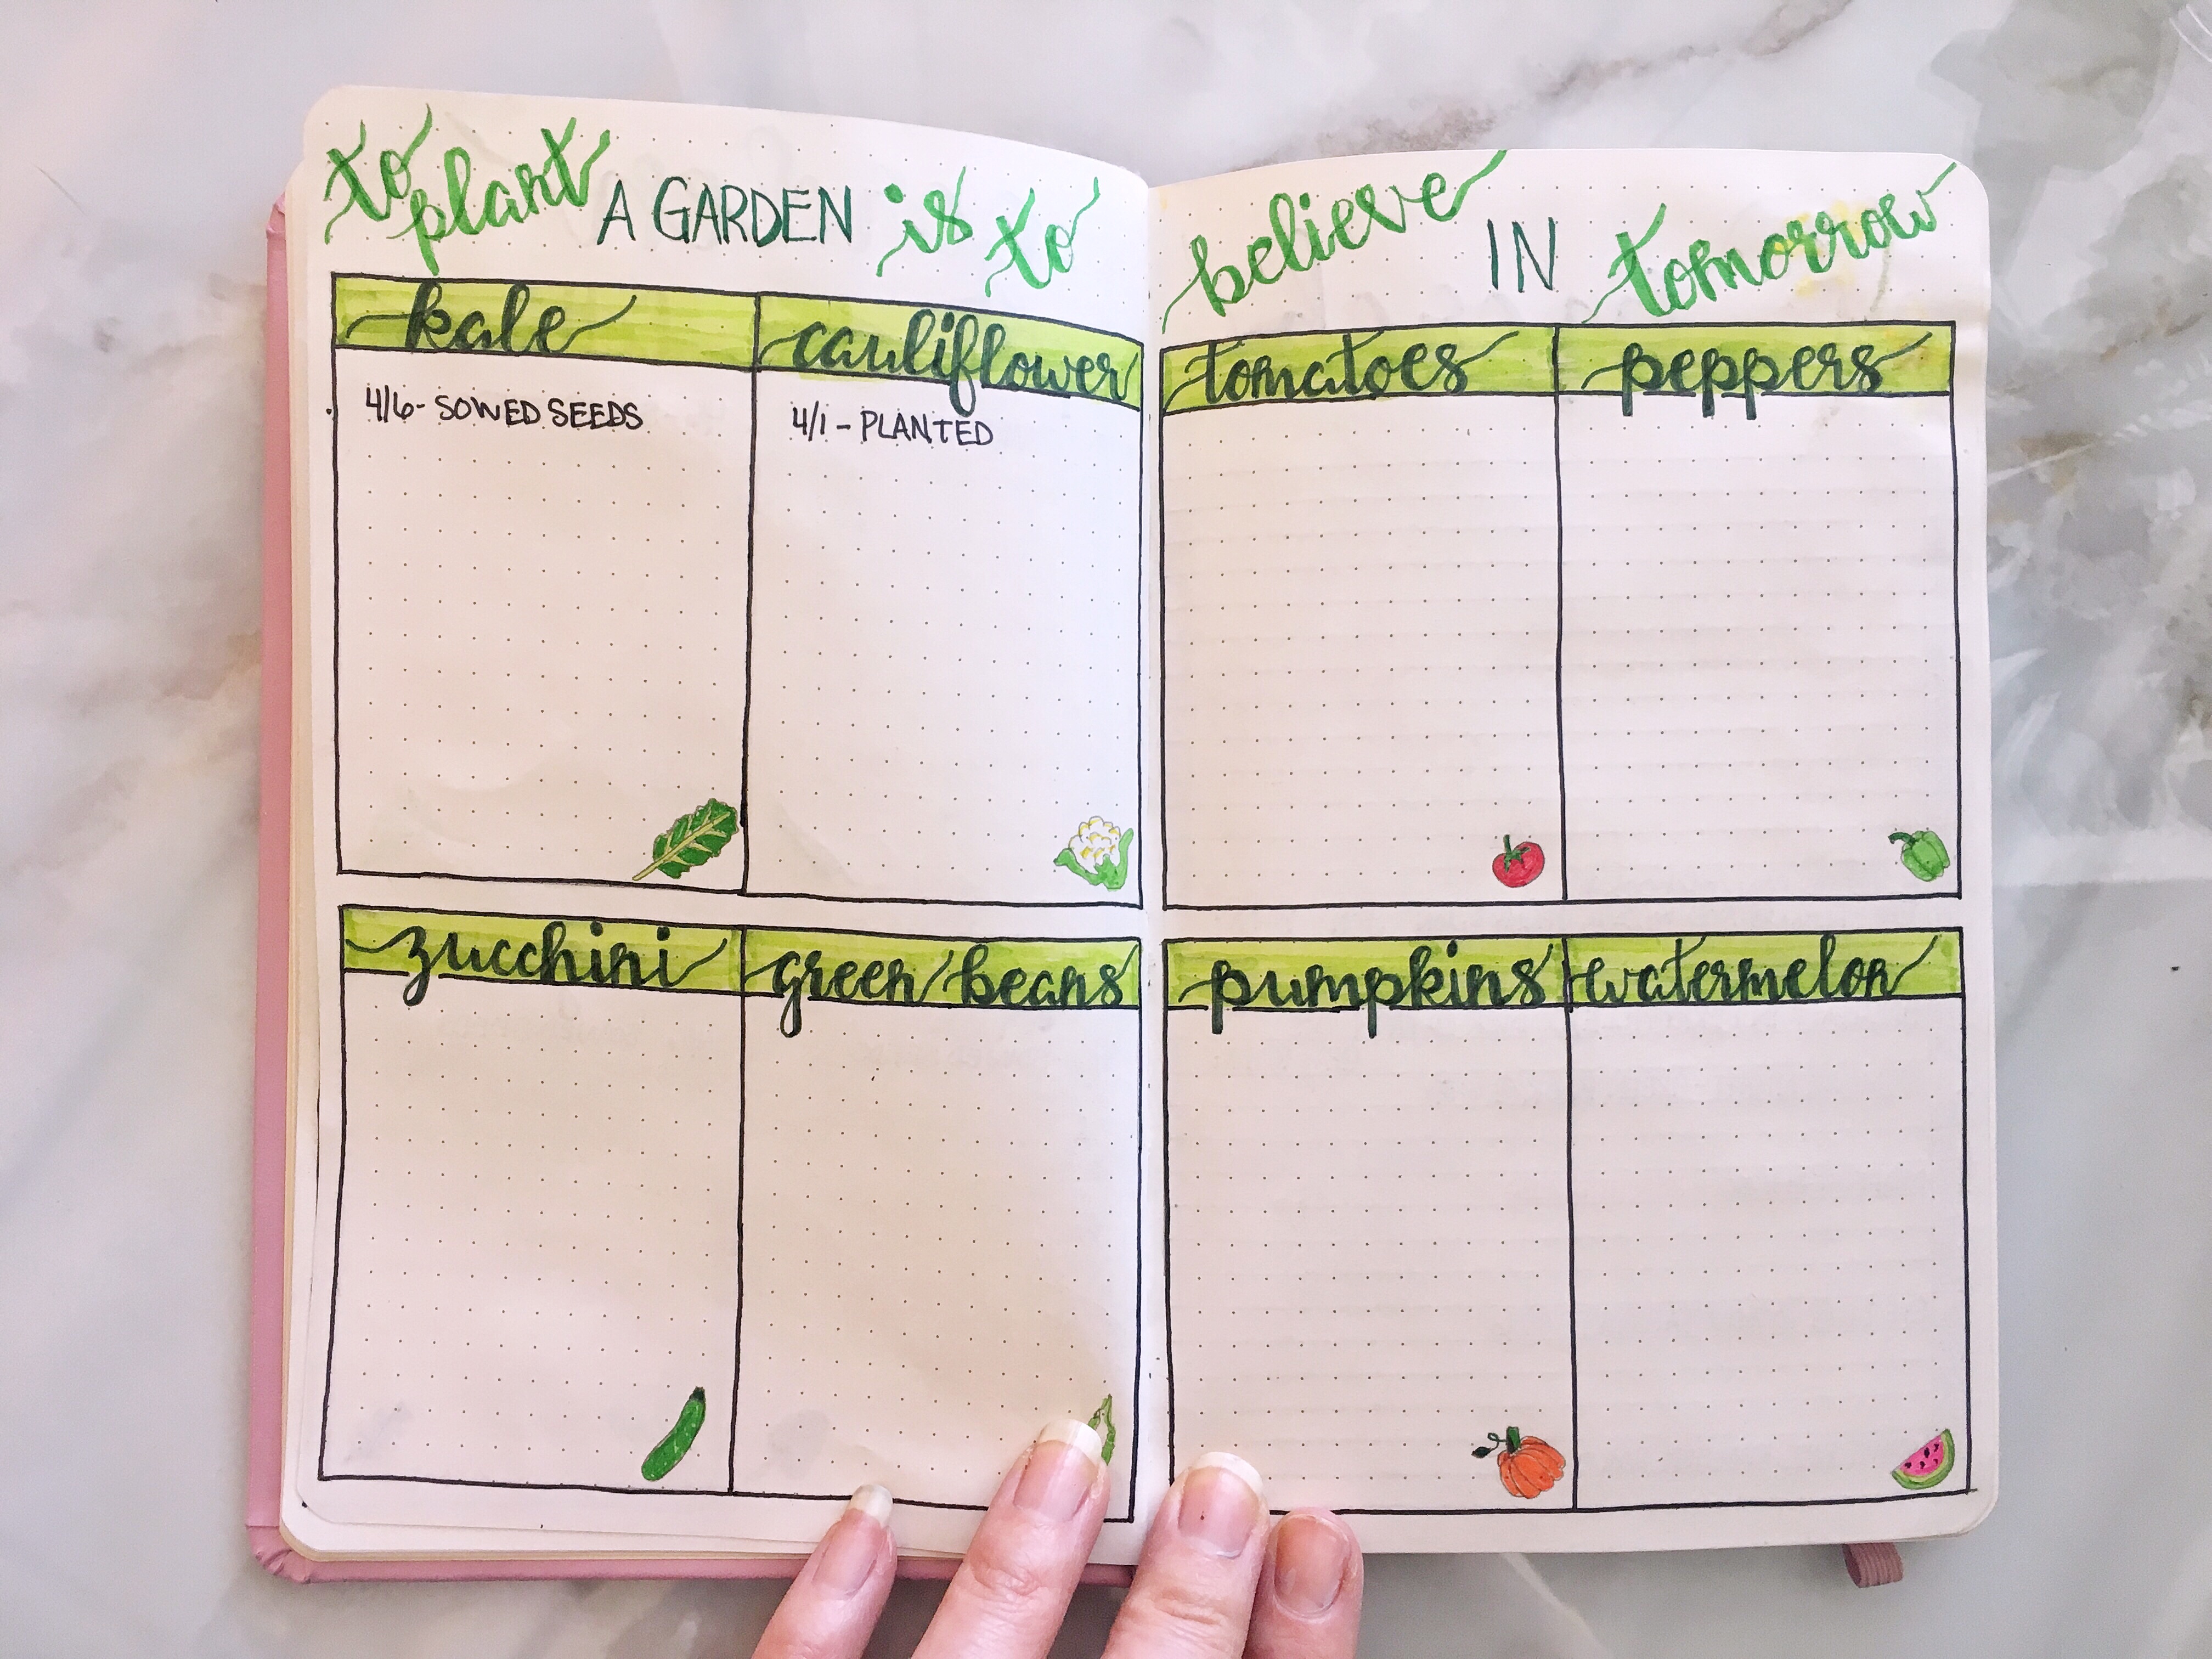 to plant A GARDEN is to believe IN tomorrow
kale
4/6- SOWED SEEDS
cauliflower
4/1 - PLANTED
tomatoes
peppers
zucchini
green beans
pumpkins
watermelon